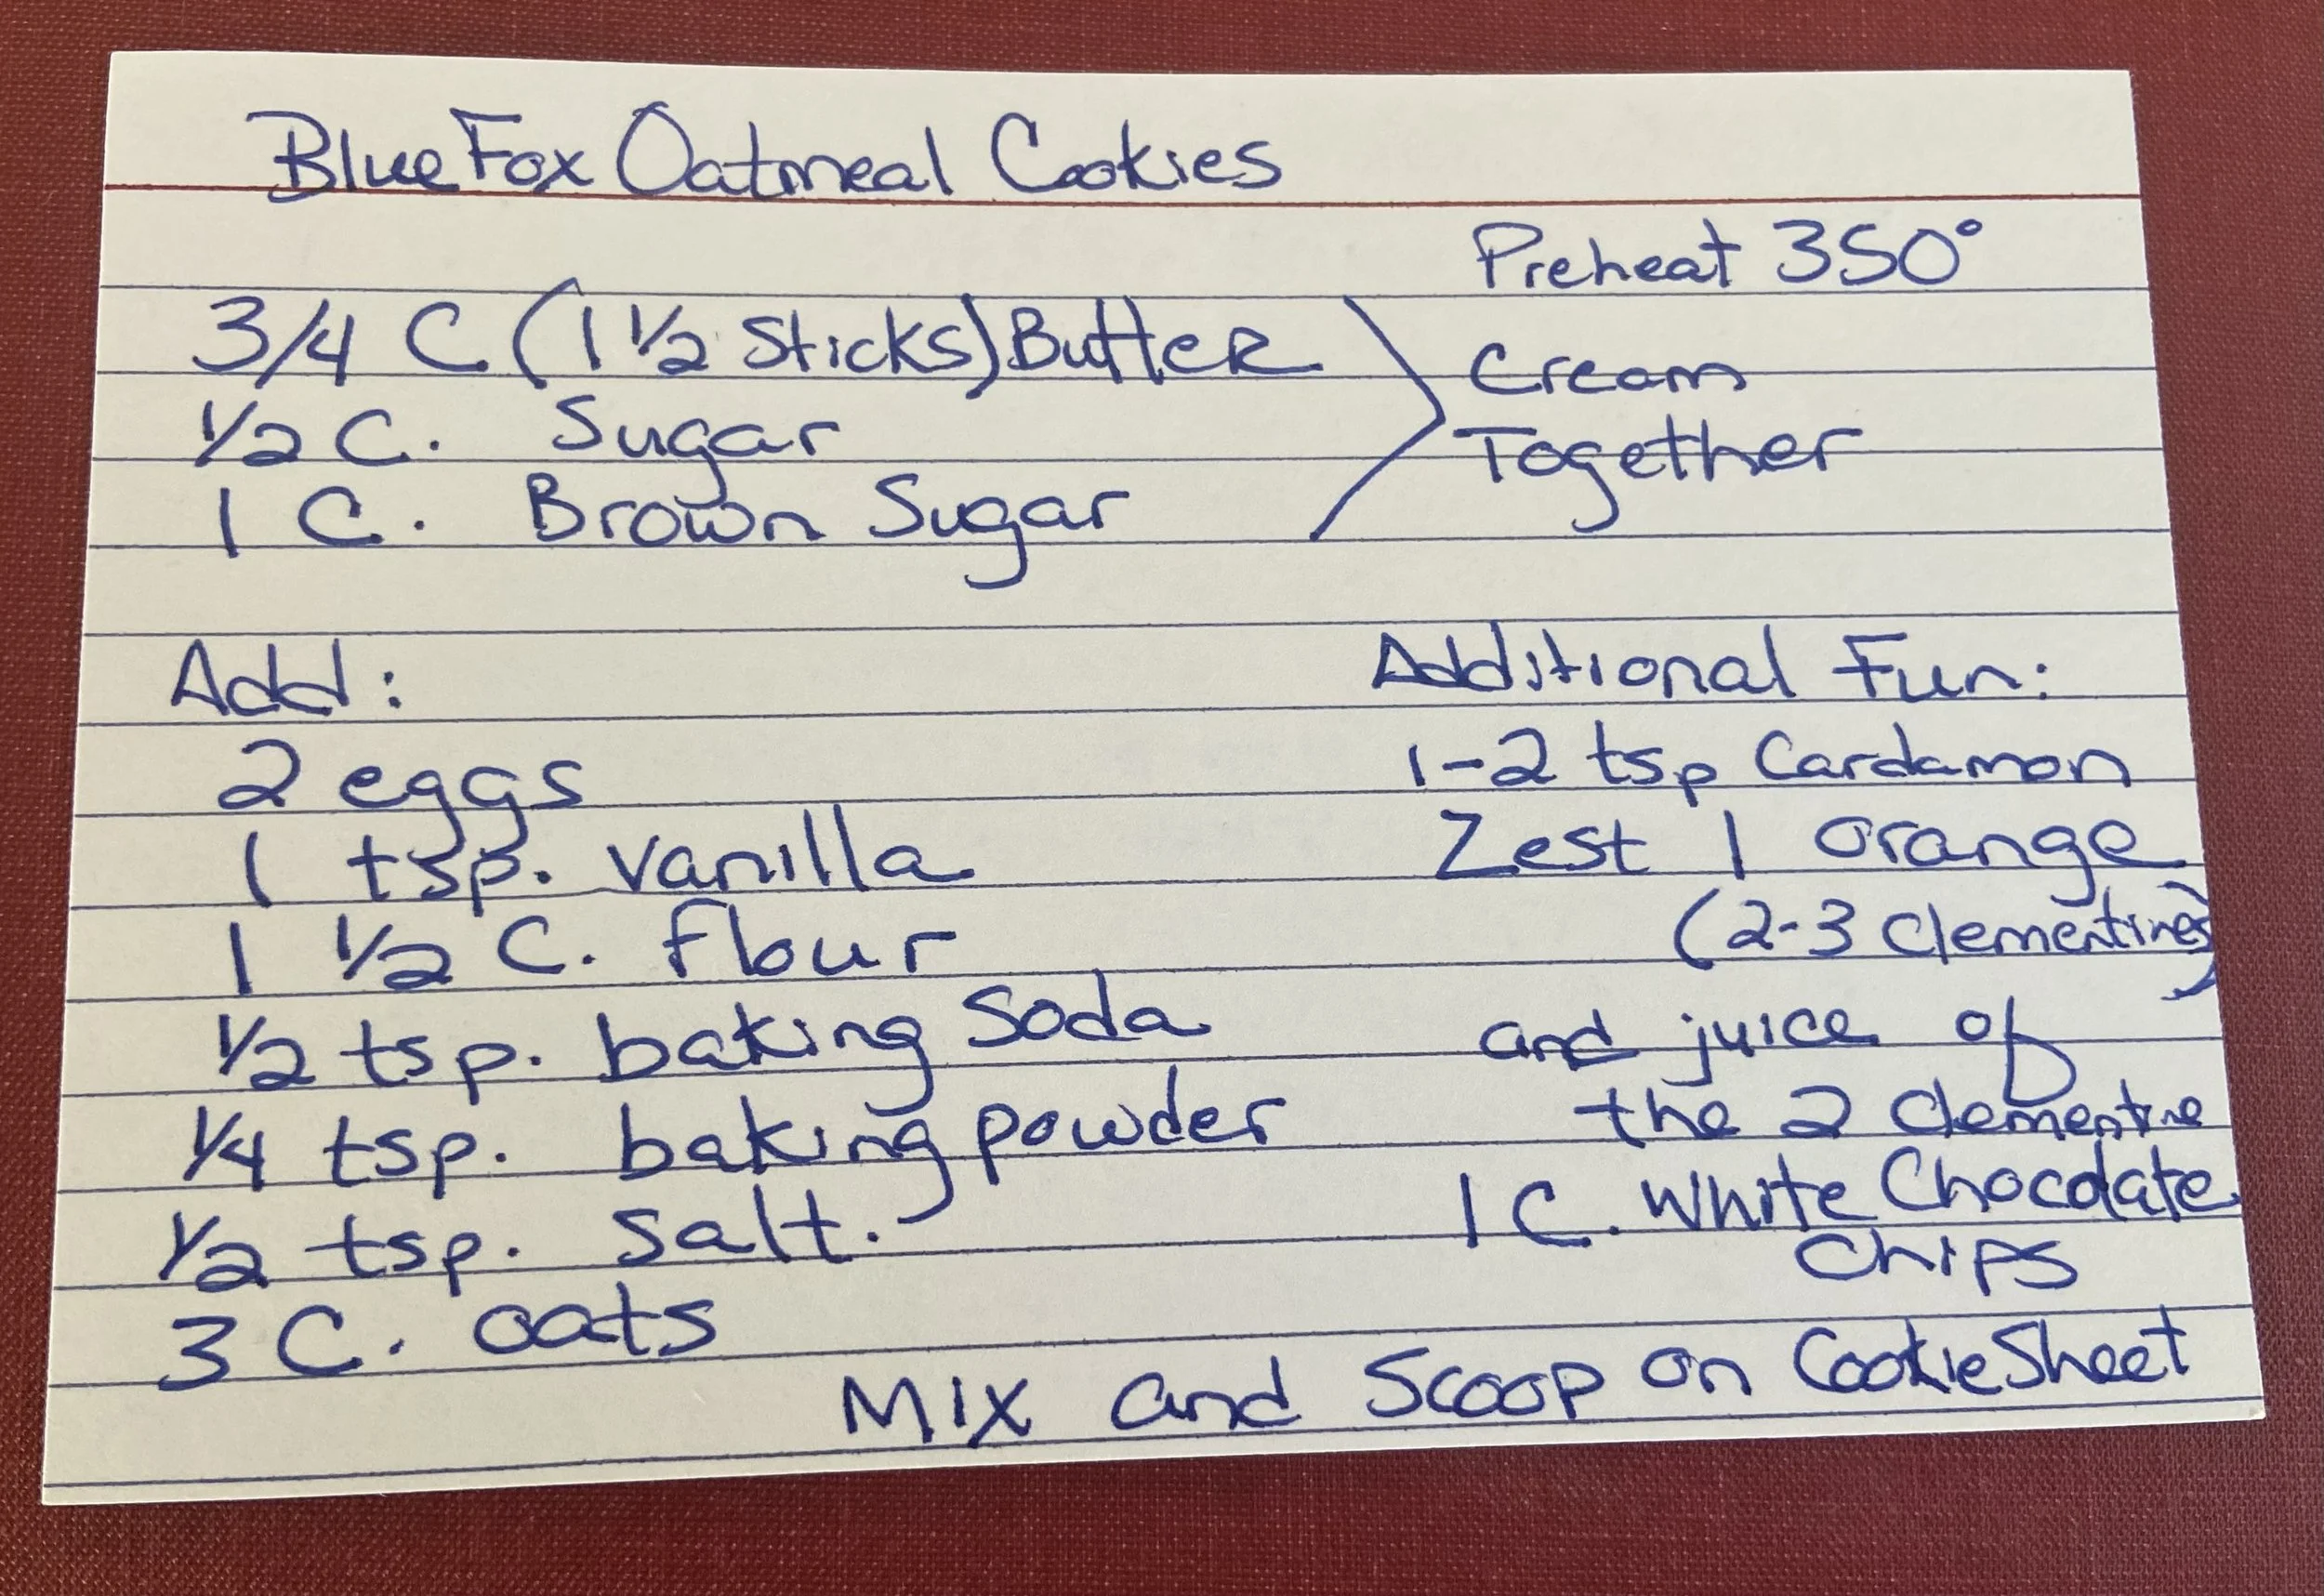 Blue Fox Oatmeal Cookies
Preheat 350°
3/4 C (1 1/2 Sticks) Butter
1/2 C. Sugar
1 C. Brown Sugar
Cream
Together
Add:
2 eggs
1 tsp. vanilla
1 1/2 C. flour
1/2 tsp. baking soda
1/4 tsp. baking powder
1/2 tsp. salt.
3 C. oats
Additional Fun:
1-2 tsp Cardamon
Zest 1 orange
(2-3 Clementines)
and juice of
the 2 Clementine
1 C. White Chocolate
Chips
Mix and Scoop on Cookie Sheet